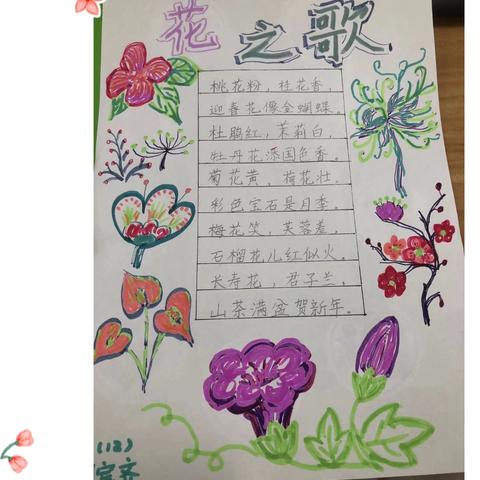 花之歌
桃花粉，桂花香，
迎春花像金蝴蝶。
杜鹃红，茉莉白，
牡丹花添国色香。
菊花黄，荷花壮，
彩色宝石是月季。
梅花笑，芙蓉羞，
石榴花儿红似火。
长寿花，君子兰，
山茶满盆贺新年。
(12)